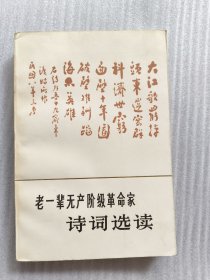 大江歌罷掉
頭東邃密群
科濟世窮
面壁十年圖
破壁難酬蹈
海亦英雄
老一辈无产阶级革命家
诗词选读